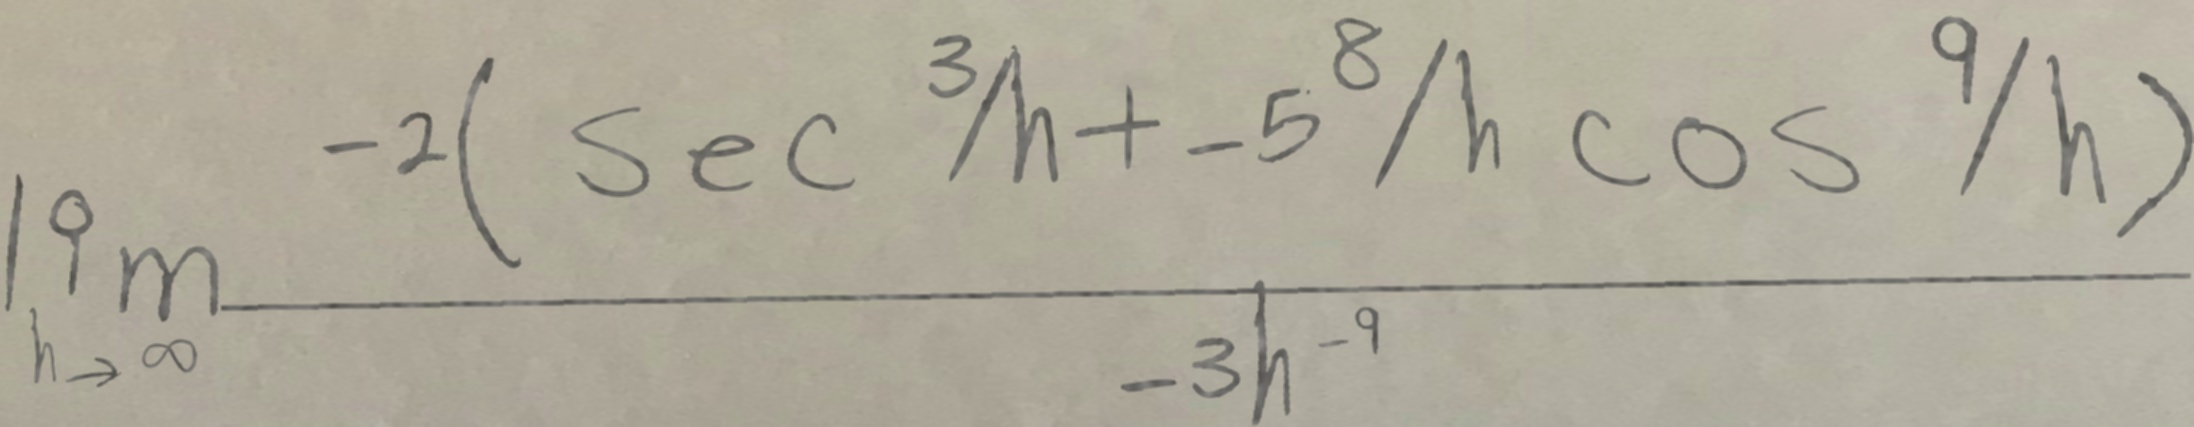 lim_{h→∞} \frac{-2(sec 3/h + -5 8/h cos 9/h)}{-3h^{-9}}